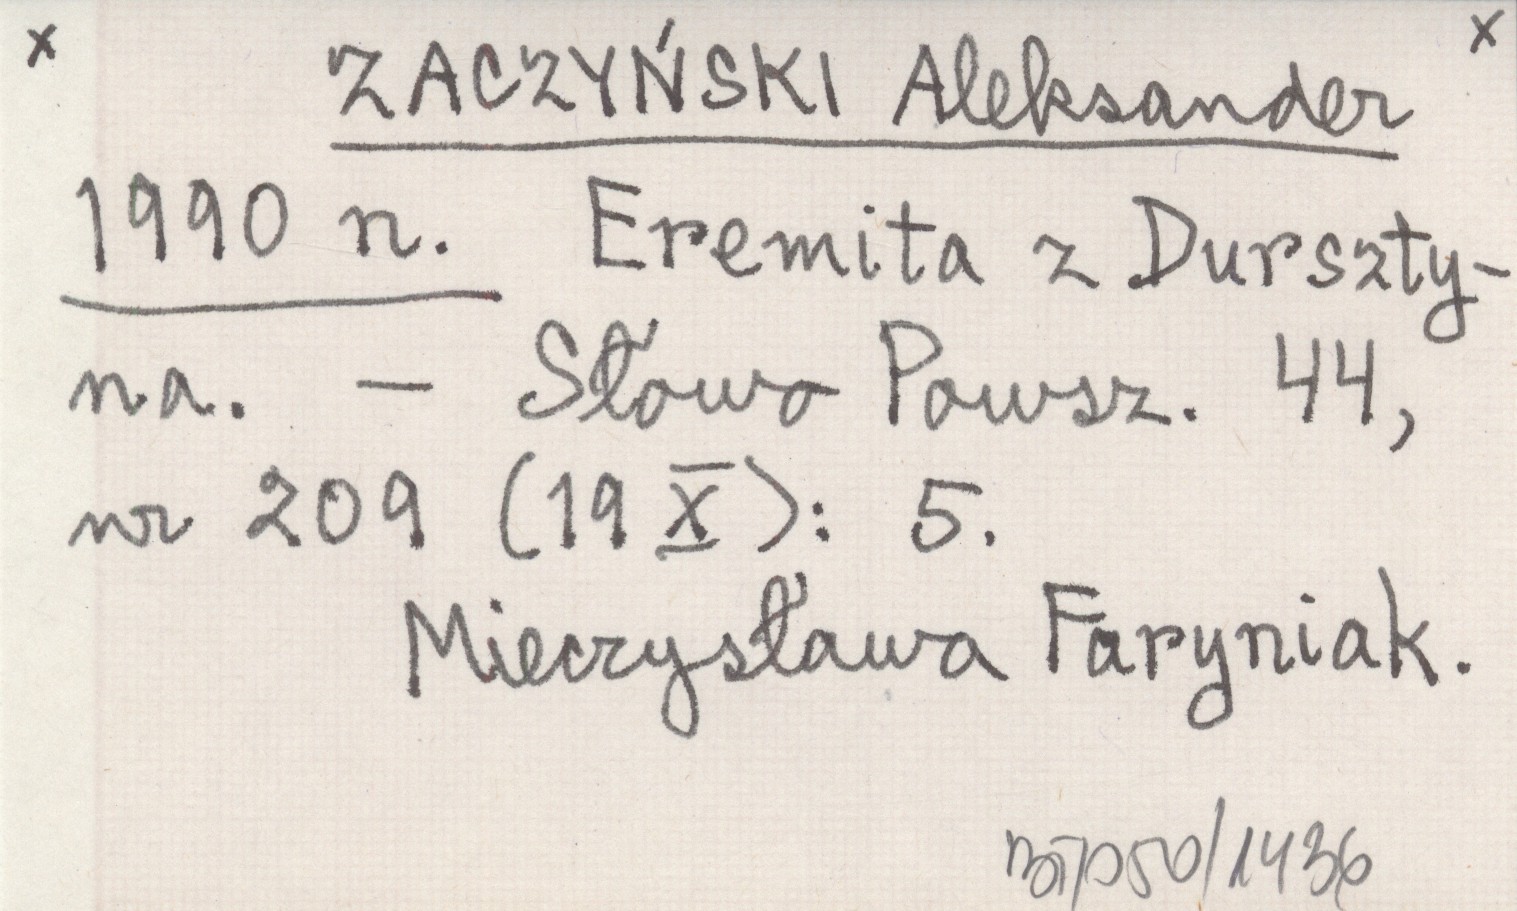 x ZACZYŃSKI Aleksander x
1990 r. Eremita z Durszty-
na. — Słowo Powsz. 44,
nr 209 (19 X): 5.
Mieczysława Faryniak.
/1436